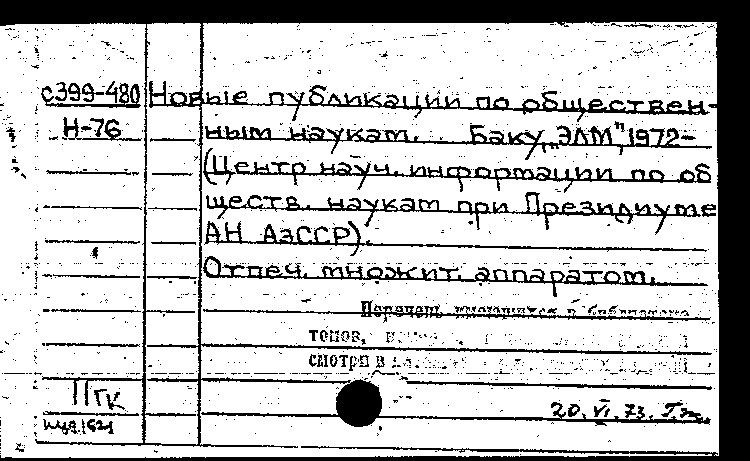 с399-480 Новые публикации по обществен-
Н-76 ным наукам. Баку, „ЭЛМ", 1972-
(Центр науч. информации по об
ществ. наукам при Президиуме
АН АзССР).
Отпеч. множит. аппаратом.
Перечень имеющихся в библиотеке
томов,
смотри в
IIГК
20.VI.73.